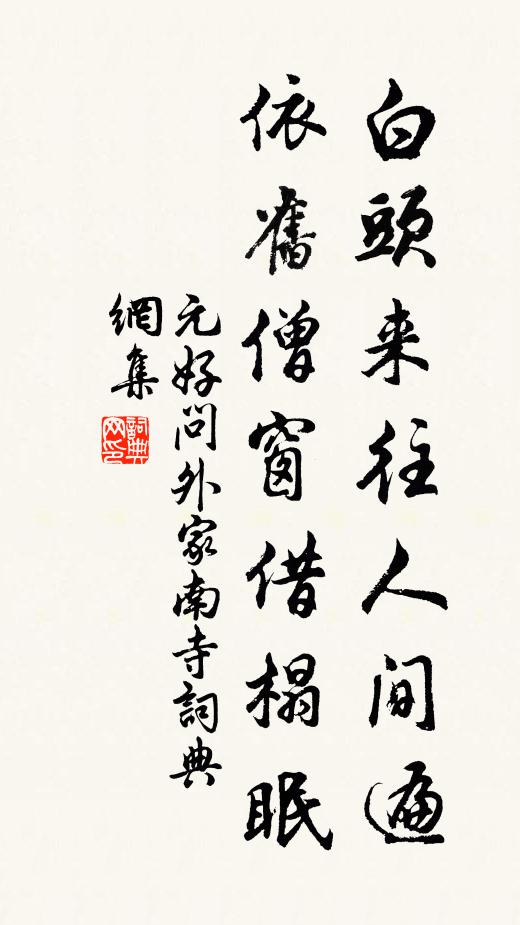 白頭来往人間遍
依舊僧窗借榻眠
元好問外家南寺詞典
網集
詞典
网印